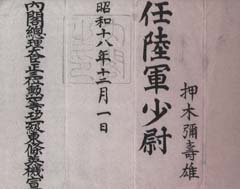 押木彌壽雄
任陸軍少尉
昭和十八年十二月一日
內閣總理大臣正三位勳一等功二級東條英機宣